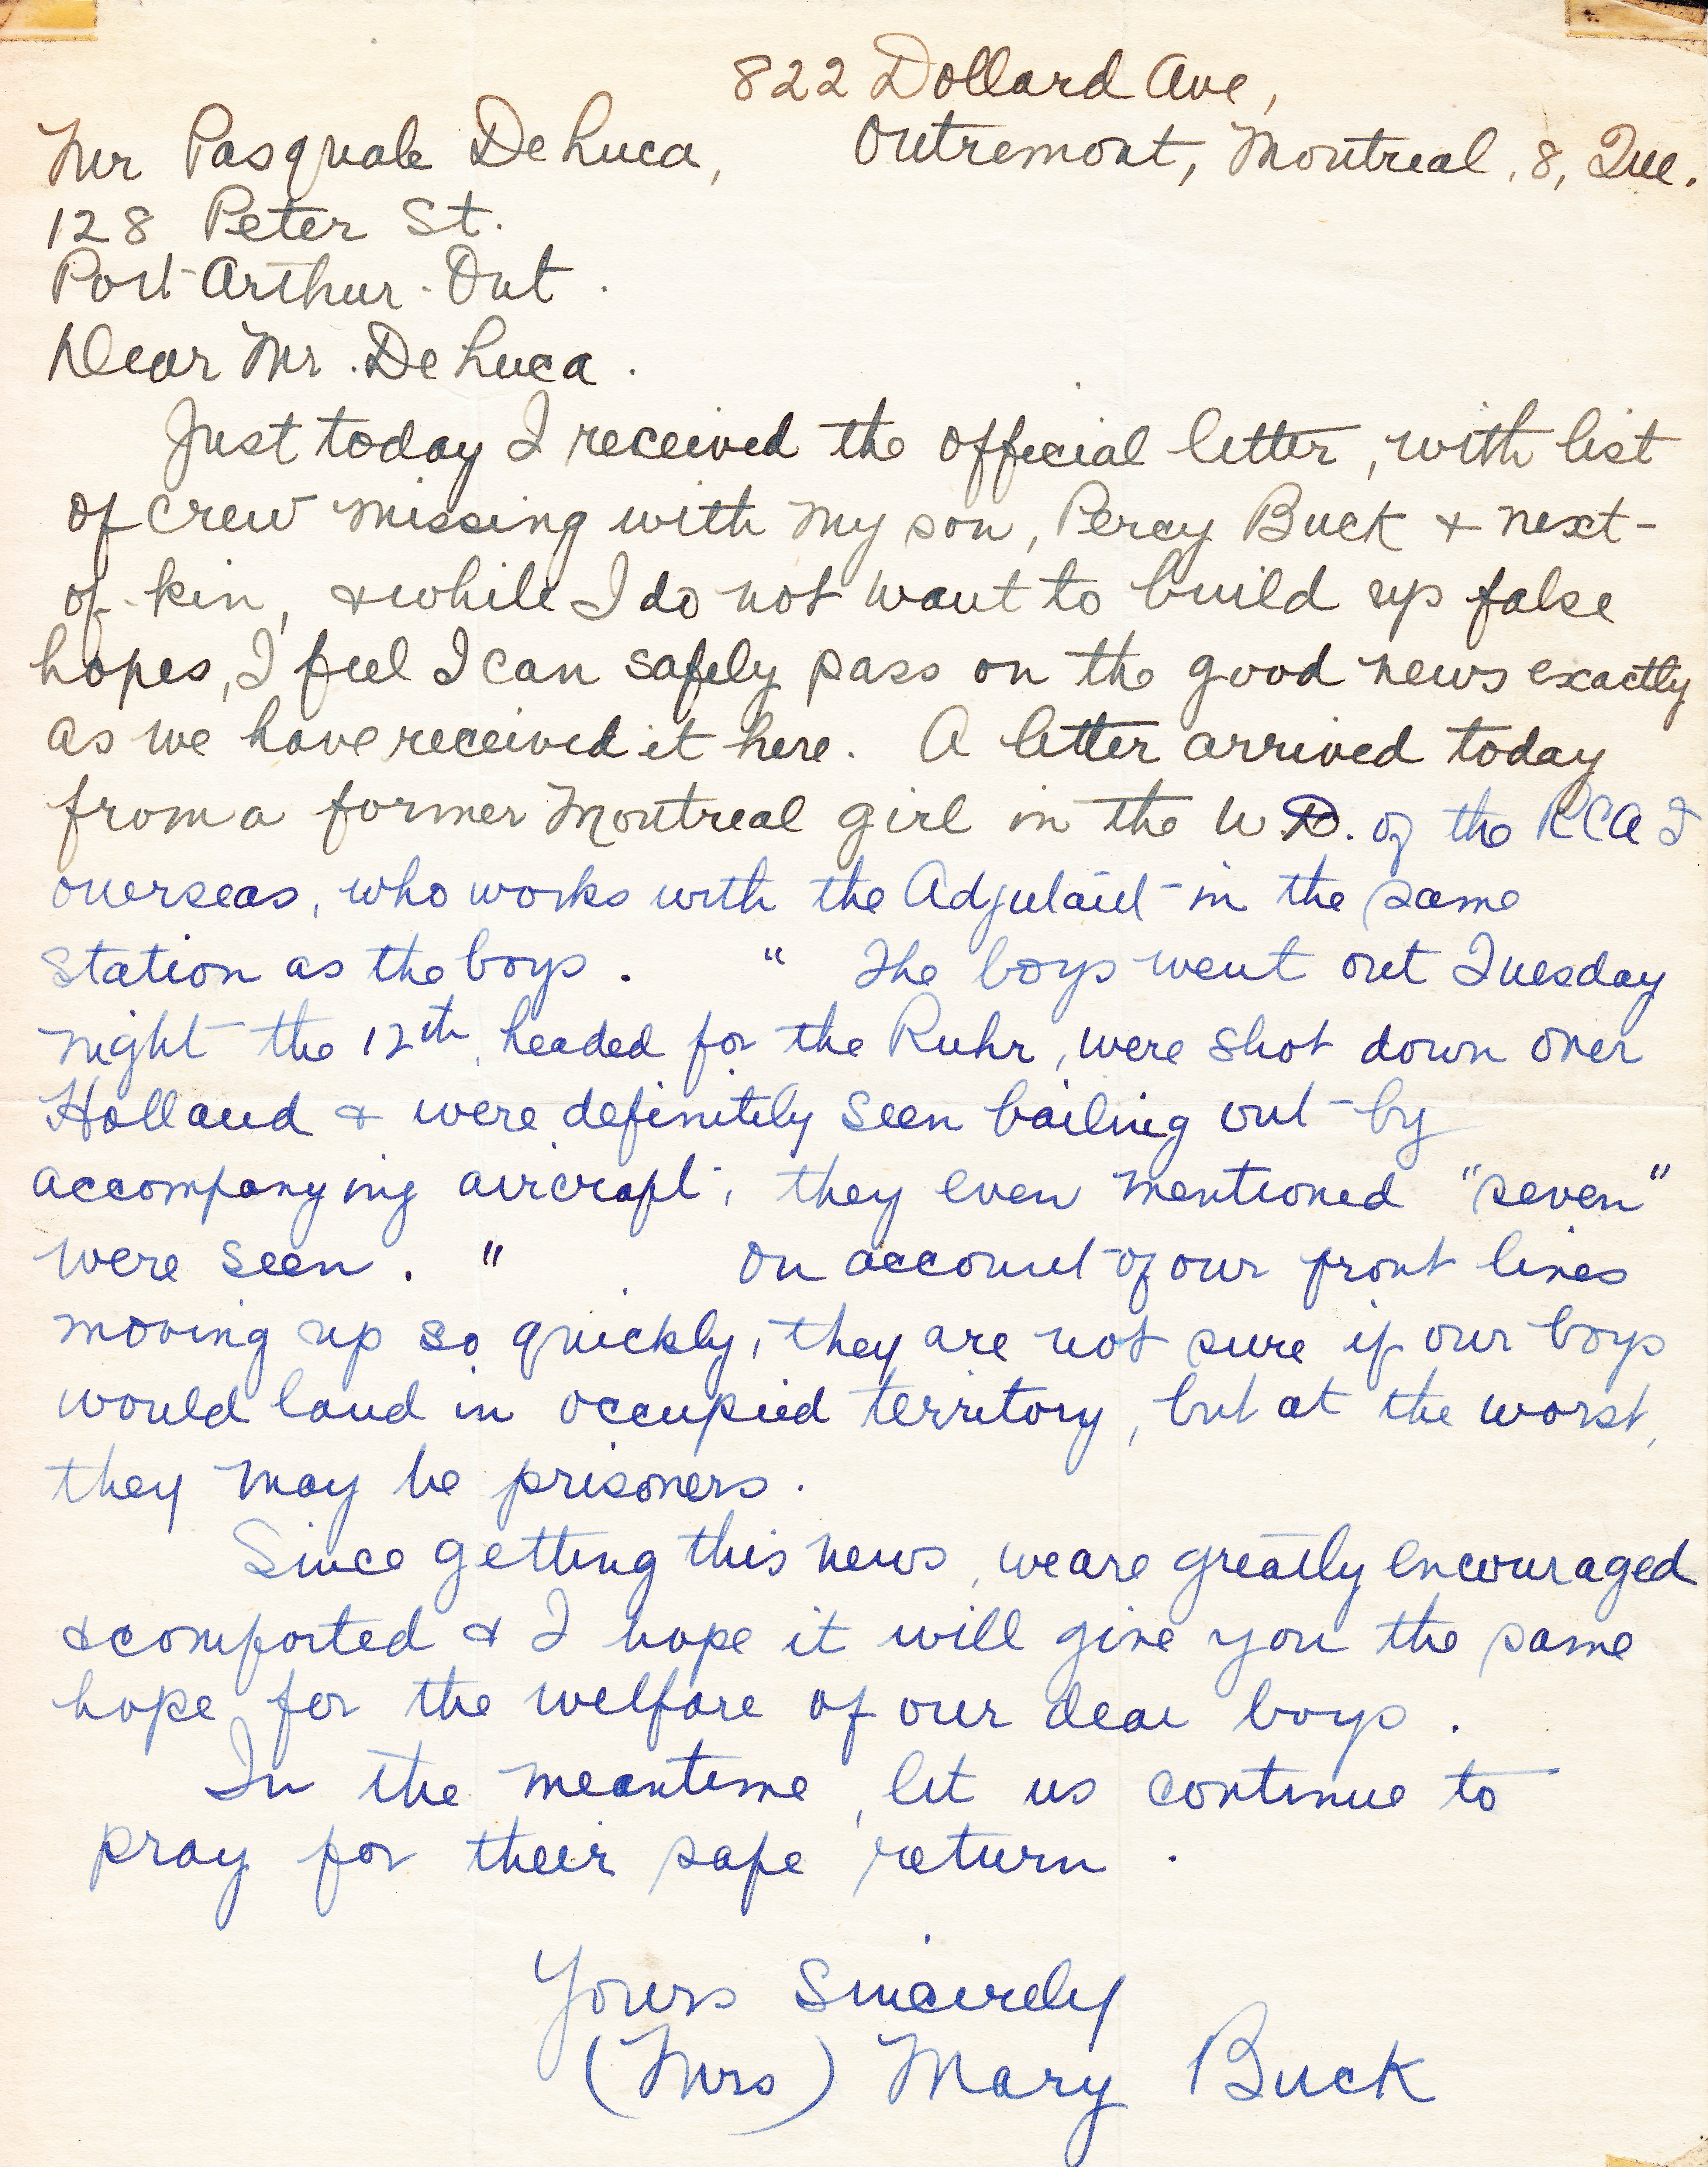 822 Dollard Ave,
Outremont, Montreal, 8, Que.
Mr Pasquale DeLuca,
128 Peter St.
Port Arthur. Ont.
Dear Mr. DeLuca.
Just today I received the official letter, with list
of crew missing with my son, Percy Buck & next-
of-kin, & while I do not want to build up false
hopes, I feel I can safely pass on the good news exactly
as we have received it here. A letter arrived today
from a former Montreal girl in the W.D. of the RCAF
overseas, who works with the Adjutant in the same
station as the boys. " The boys went out Tuesday
night the 12th, headed for the Ruhr, were shot down over
Holland & were definitely seen bailing out by
accompanying aircraft; they even mentioned "seven"
were seen. " On account of our front lines
moving up so quickly, they are not sure if our boys
would land in occupied territory, but at the worst,
they may be prisoners.
Since getting this news, we are greatly encouraged
& comforted & I hope it will give you the same
hope for the welfare of our dear boys.
In the meantime, let us continue to
pray for their safe return.
Yours Sincerely
(Mrs) Mary Buck